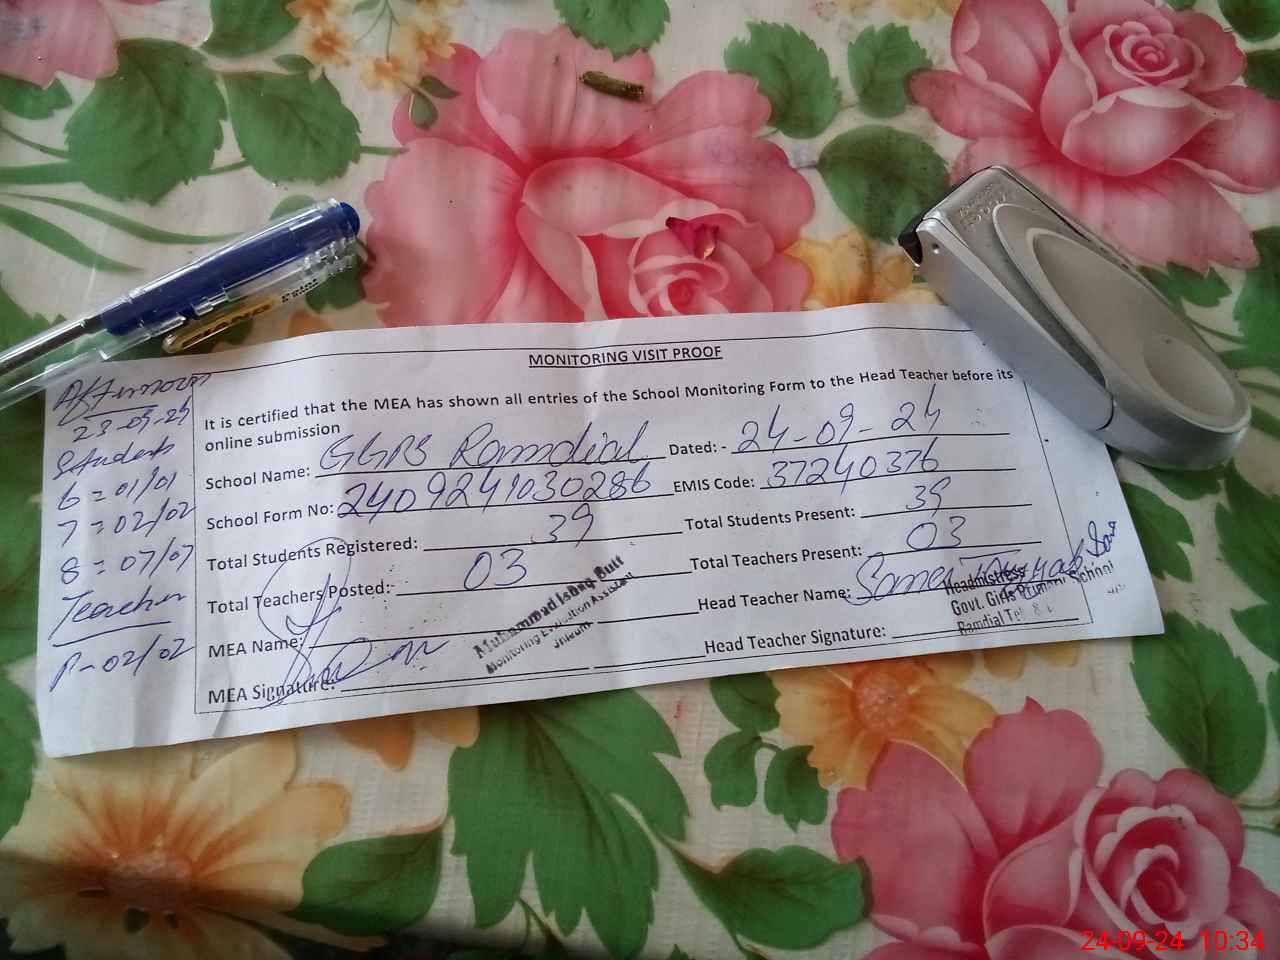 MONITORING VISIT PROOF
It is certified that the MEA has shown all entries of the School Monitoring Form to the Head Teacher before its
online submission
School Name: GGPS Ramdial Dated: - 24-09-24
School Form No: 2409241030286 EMIS Code: 37240376
Total Students Registered: 39 Total Students Present: 39
Total Teachers Posted: 03 Total Teachers Present: 03
MEA Name: Head Teacher Name:
MEA Signature: Head Teacher Signature:
Muhammad Ishaq Butt
Monitoring Evaluation Assistant
Jhelum
Headmistress
Govt. Girls Primary School
Ramdial
Afternoon
23-09-24
Students
6 = 01/01
7 = 02/02
8 = 07/07
Teacher
P-02/02
PIANO
Point
24-09-24 10:34